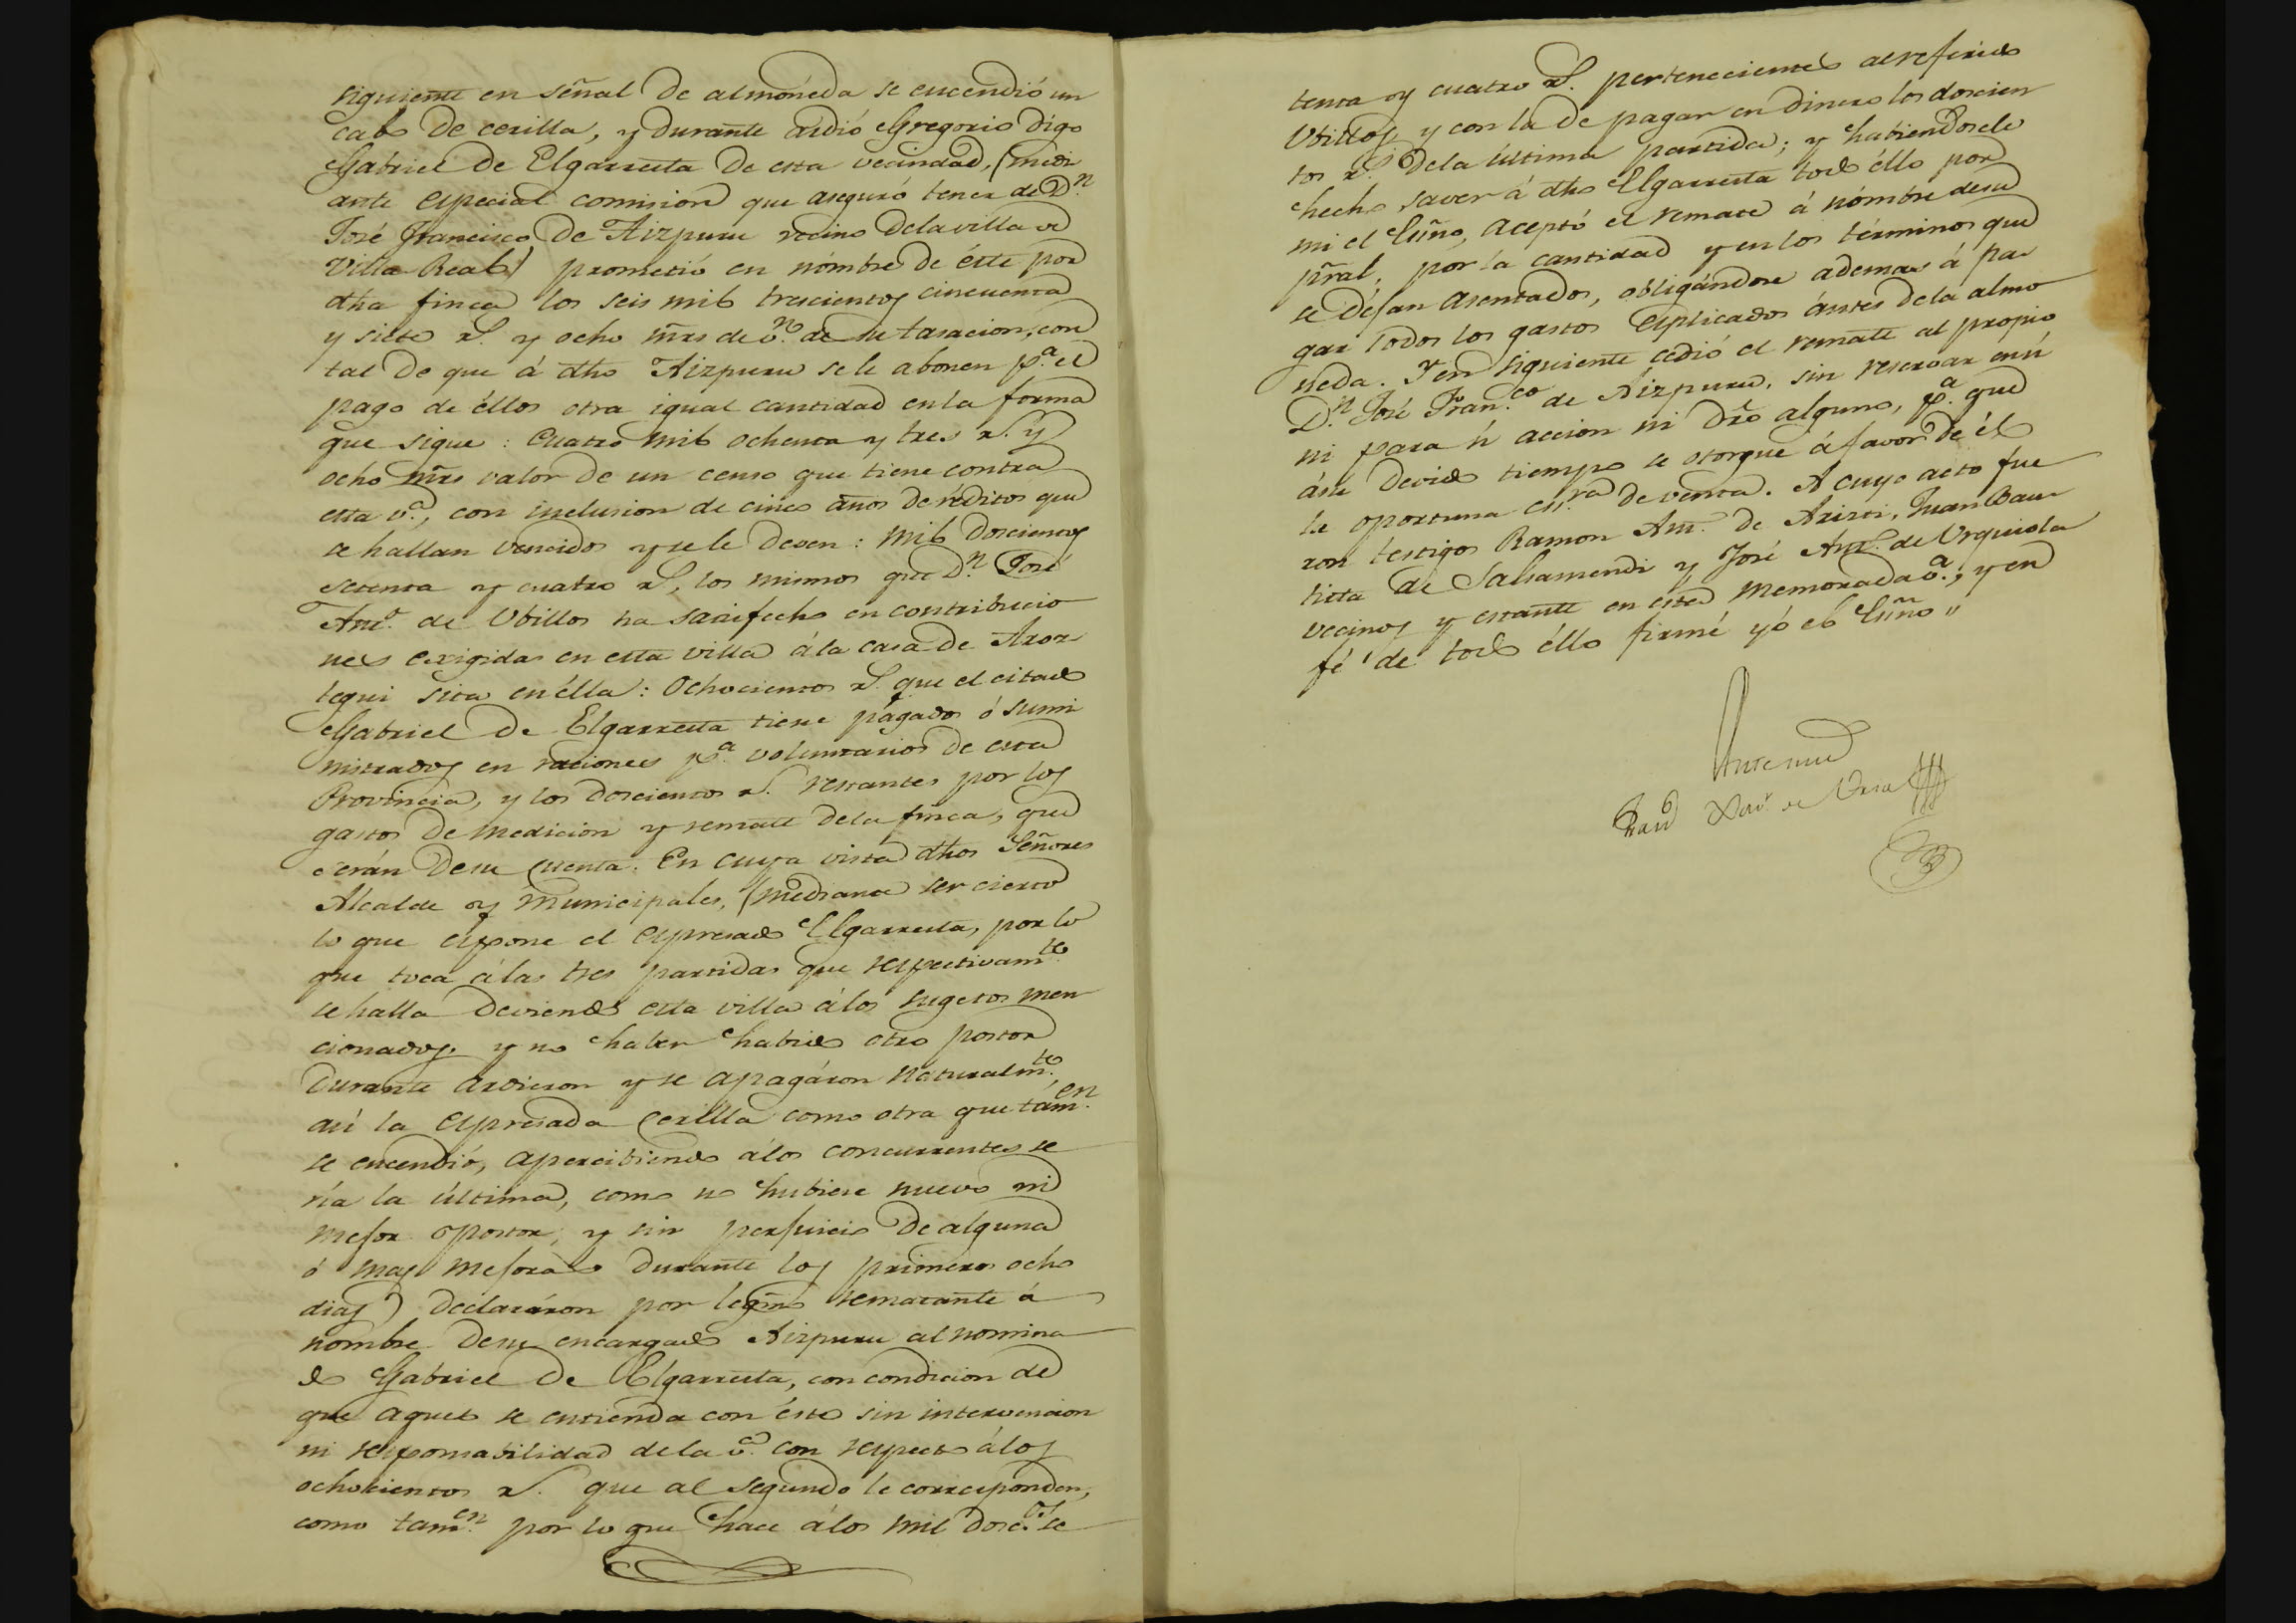 siguiente en señal de almóneda se encendió un
cabo de cerilla, y durante árdió Gregorio digo
Gabriel de Elgarresta de esta vecindad, (medi
ante especial comision que aseguró tener de D.n
José Francisco de Aizpuru vecino dela villa de
Villa Real) prometió en nómbre de éste por
dha finca los seis mil trescientos cincuenta
y siete r.s y ocho mrs de v.n de su tasacion, con
tal de que á dho Aizpuru se le abonen p.a el
pago de éllos otra igual cantidad en la forma
que sigue: Cuatro mil ochenta y tres r.s y
ocho mrs valor de un censo que tiene contra
esta v.a, con inclusion de cinco años de réditos que
se hallan vencidos y se le deven: mil doscientos
setenta y cuatro r.s, los mismos que D.n José
Ant.o de Ubillos ha satisfecho en contribucio
nes exigidas en esta villa á la casa de Aroz
tegui sita en élla: Ochocientos r.s que el citado
Gabriel de Elgarresta tiene págados ó sumi
nistrados en raciones p.a voluntarios de esta
Provincia, y los doscientos r.s restantes por los
gastos de medicion y remate dela finca, que
serán de su cuenta. En cuya vista dhos Señores
Alcalde y Municipales, (mediante ser cierto
lo que espone el espresado Elgarresta, por lo
que toca á las tres partidas que respectivam.te
se halla deviendo esta villa á los sugetos men
cionados, y no haber habido otro postor
durante ardieron y se apagáron naturalm.te,
asi la espresada cerilla como otra que tam.en
se encendió, apercibiendo á los concurrentes se
ría la última, como no hubiese nuevo ni
mejor postor, y sin perjuicio de alguna
ó mas mejoras durante los primeros ocho
dias) declaráron por legmo rematante á
nombre de su encargado Aizpuru al nomina
do Gabriel de Elgarresta, con condicion de
que aquel se entienda con éste sin intervencion
ni responsabilidad de la v.a con respecto á los
ochocientos r.s que al segundo le corresponden,
como tam.en por lo que hace á los mil dosc.s se
tenta y cuatro r.s pertenecientes al referido
Ubillos, y con la de pagar en dinero los doscien
tos r.s de la última partida; y habiendosele
hecho saver á dho Elgarresta todo éllo por
mi el Essno, aceptó el remate á nómbre de su
pral, por la cantidad y en los términos que
se déjan asentados, obligándose ademas á pa
gar todos los gastos esplicados ántes de la almo
neda. Y en siguiente cedió el remate al propio
D.n José Fran.co de Aizpuru, sin reservar en si
ni para si accion ni dro alguno, p.a que
á su devido tiempo se otorgue á favor de él
la oportuna ess.ra de venta. A cuyo acto fue
ron testigos Ramon Ant.o de Aristi, Juan Bau
tista de Salsamendi y José Ant.o de Urquiola
vecinos y estante en esta memorada v.a, y en
fé de todo éllo firmé yó el Essno "
Ante mi
Xav.r de Uria